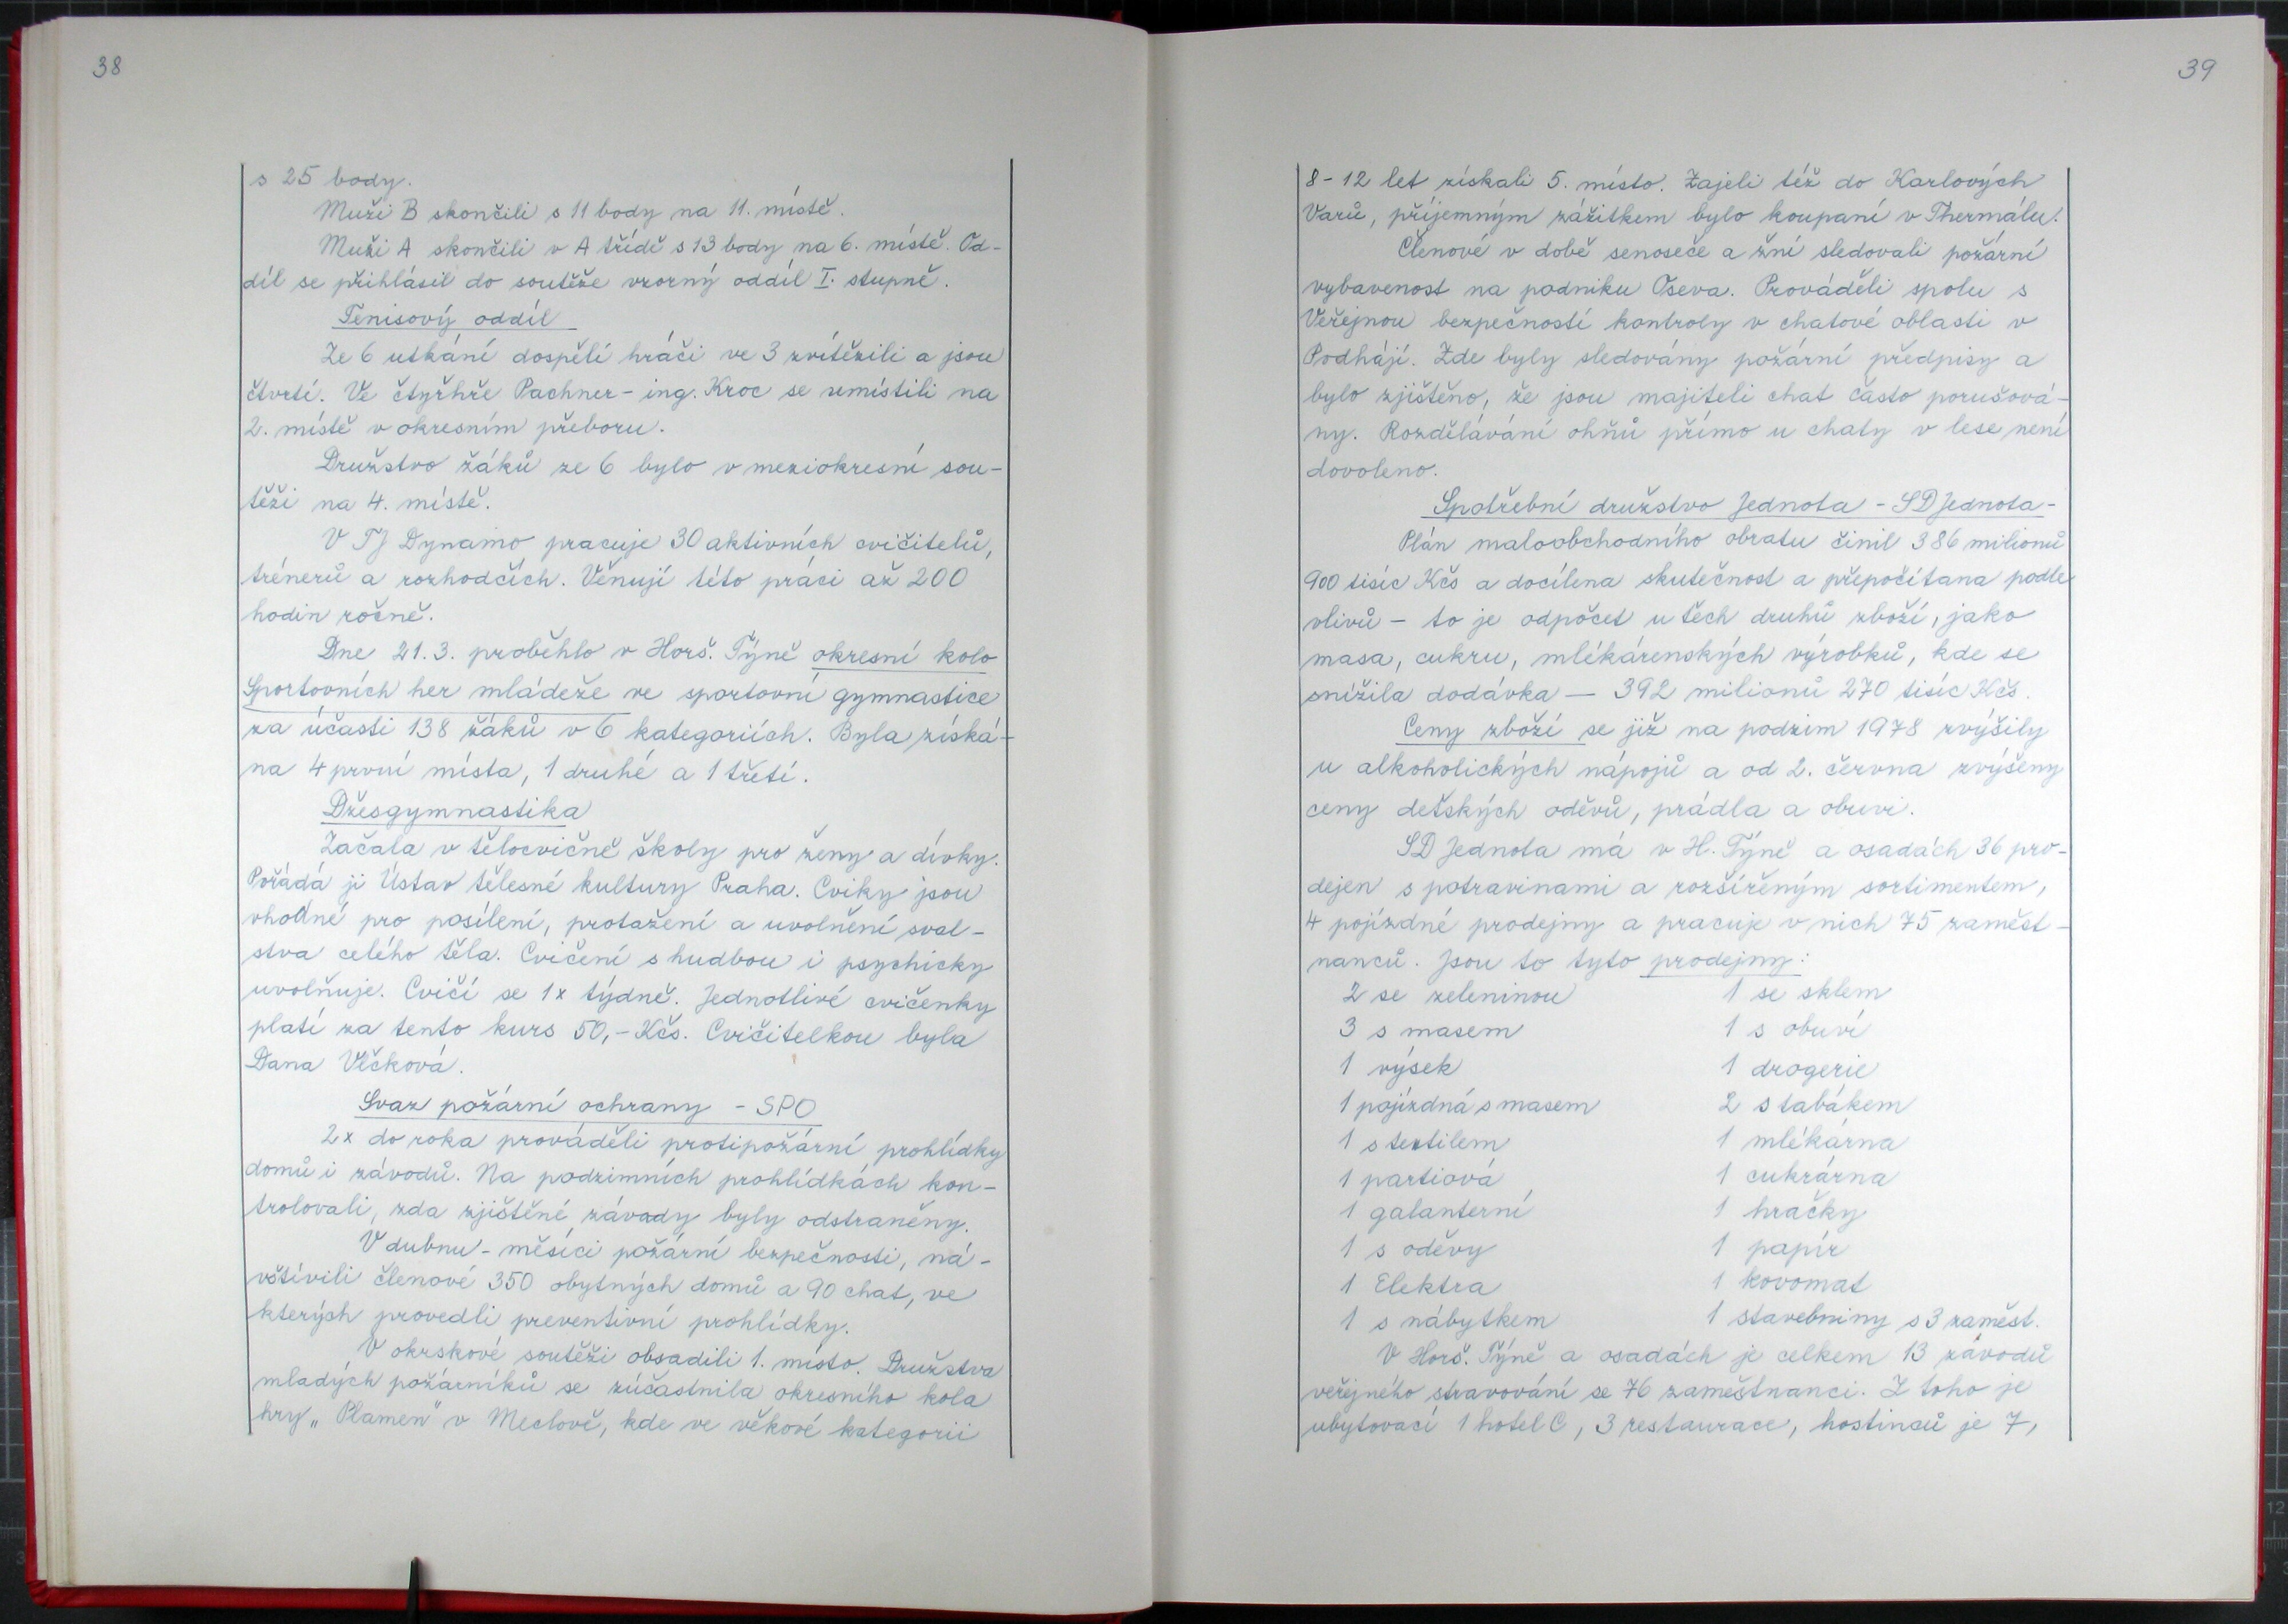 38
s 25 body.
Muži B skončili s 11 body na 11. místě.
Muži A skončili v A třídě s 13 body na 6. místě. Od-
díl se přihlásil do soutěže vzorný oddíl I. stupně.
Tenisový oddíl
Ze 6 utkání dospělí hráči ve 3 zvítězili a jsou
čtvrtí. Ve čtyřhře Pachner - ing. Kroc se umístili na
2. místě v okresním přeboru.
Družstvo žáků ze 6 bylo v meziokresní sou-
těži na 4. místě.
V TJ Dynamo pracuje 30 aktivních cvičitelů,
trénerů a rozhodčích. Věnují této práci až 200
hodin ročně.
Dne 21. 3. proběhlo v Horš. Týně okresní kolo
Sportovních her mládeže ve sportovní gymnastice
za účasti 138 žáků v 6 kategoriích. Byla získá-
na 4 první místa, 1 druhé a 1 třetí.
Džesgymnastika
Začala v tělocvičně školy pro ženy a dívky.
Pořádá ji Ústav tělesné kultury Praha. Cviky jsou
vhodné pro posílení, protažení a uvolnění sval-
stva celého těla. Cvičení s hudbou i psychicky
uvolňuje. Cvičí se 1x týdně. Jednotlivé cvičenky
platí za tento kurs 50,- Kčs. Cvičitelkou byla
Dana Vlčková.
Svaz požární ochrany - SPO
2x do roka prováděli protipožární prohlídky
domů i závodů. Na podzimních prohlídkách kon-
trolovali, zda zjištěné závady byly odstraněny.
V dubnu - měsíci požární bezpečnosti, na-
vštívili členové 350 obytných domů a 90 chat, ve
kterých provedli preventivní prohlídky.
V okrskové soutěži obsadili 1. místo. Družstva
mladých požárníků se zúčastnila okresního kola
hry „Plamen" v Meclově, kde ve věkové kategorii
39
8 - 12 let získali 5. místo. Zajeli též do Karlových
Varů, příjemným zážitkem bylo koupaní v Thermálu.
Členové v době senoseče a žní sledovali požární
vybavenost na podniku Oseva. Prováděli spolu s
Veřejnou bezpečností kontroly v chatové oblasti v
Podhájí. Zde byly sledovány požární předpisy a
bylo zjištěno, že jsou majiteli chat často porušová-
ny. Rozdělávání ohňů přímo u chaty v lese není
dovoleno.
Spotřební družstvo Jednota - SD Jednota -
Plán maloobchodního obratu činil 386 milionů
900 tisíc Kčs a docílena skutečnost a přepočítana podle
vlivů - to je odpočet u těch druhů zboží, jako
masa, cukru, mlékárenských výrobků, kde se
snížila dodávka - 392 milionů 270 tisíc Kčs.
Ceny zboží se již na podzim 1978 zvýšily
u alkoholických nápojů a od 2. června zvýšeny
ceny detských oděvů, prádla a obuvi.
SD Jednota má v H. Týně a osadách 36 pro-
dejen s potravinami a rozšířeným sortimentem,
4 pojízdné prodejny a pracuje v nich 75 zaměst-
nanců. Jsou to tyto prodejny:
2 se zeleninou 1 se sklem
3 s masem 1 s obuví
1 výsek 1 drogerie
1 pojízdná s masem 2 s tabákem
1 s textilem 1 mlékárna
1 partiová 1 cukrárna
1 galanterní 1 hračky
1 s oděvy 1 papír
1 Elektra 1 kovomat
1 s nábytkem 1 stavebniny s 3 zaměst.
V Horš. Týně a osadách je celkem 13 závodů
veřejného stravování se 76 zaměstnanci. Z toho je
ubytovací 1 hotel C, 3 restaurace, hostinců je 7,